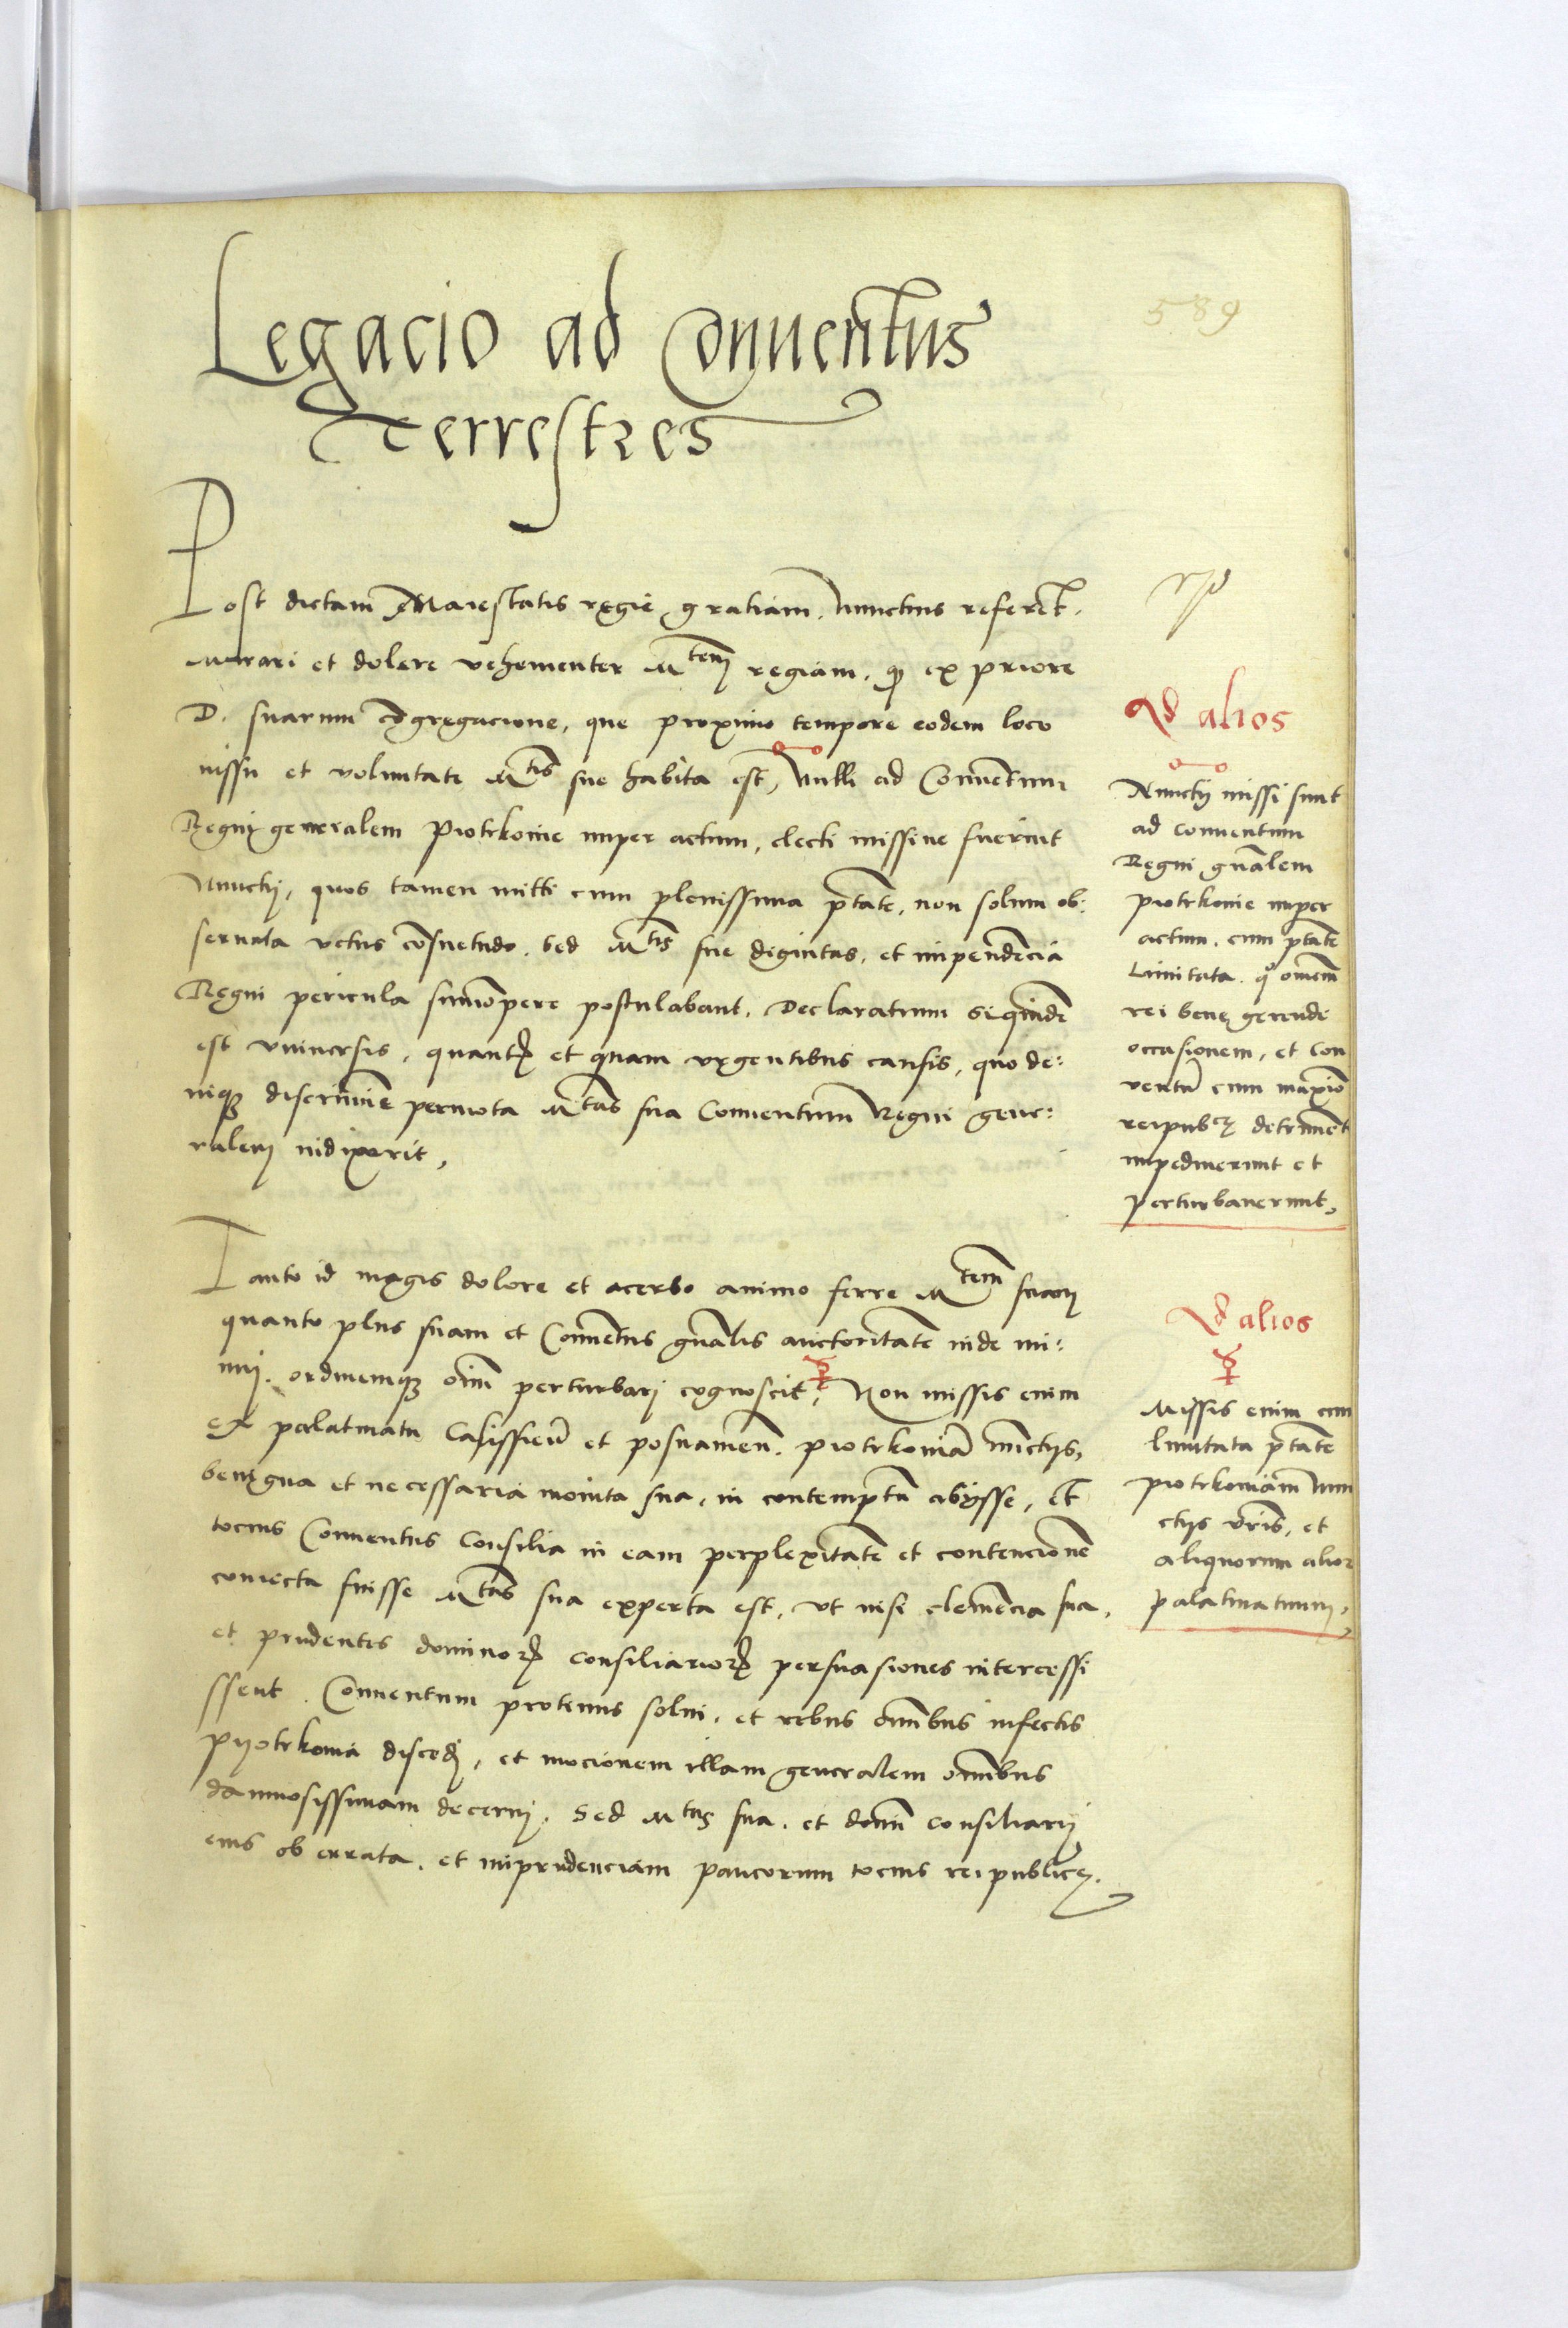 589
Legacio ad Conuentus
Terrestres
Post dictam Maiestatis regie gratiam. Nunctius referet.
Mirari et dolere vehementer Mtem regiam. qȝ ex priore
D. suarum cōgregacione, que proximo tempore eodem loco
iussu et voluntate Mtis sue habita est, Nulli ad Conuentum
Regni generalem Piotrkouie nuper actum, electi missiue fuerint
Nunctij, quos tamen mitti cum plenissima ptāte, non solum ob:
seruata vetus cōsuetudo. sed Mtis sue dignitas, et impendēcia
Regni pericula summōpere postulabant. Declaratum siquidē
est vniuersis, quantꝝ et quam vrgentibus causis, quo de:
niqȝ discrimine permota Mtas sua Conuentum Regni gene:
ralem indixerit,
Tanto id magis dolore et acerbo animo ferre Mtem suam
quanto plus suam et Conuētus gnālis auctoritatē inde mi:
nuj. ordinemqȝ oīm perturbarj cognoscit, Non missis enim
ex palatinatu Calissieñ et posnanieñ. piotrkouiā nūctijs,
benigna et necessaria monita sua, in contemptū abijsse, Et
tocius Conuentus Consilia in eam perplexitatē et contencionē
coniecta fuisse Mtas sua experta est, vt nisi clemēcia sua,
et prudentes dominoꝝ consiliarioꝝ persuasiones intercessi
ssent. Conuentum protinus solui. et rebus omībus infectis
Pyotrkouia discedj, et mocionem illam generalem omībus
damnosissimam decernj. Sed Mtas sua. et domī consiliarij
eius ob errata. et imprudenciam paucorum tocius reipublice.
Ad alios
Nunctij missi sunt
ad conuentum
Regni gnālem
piotrkouie nuper
actum. cum ptāte
Limitata. qȝ omēm
rei bene gerende
occasionem, et con
uentū cum maxīo
reipubce detrimēt
impediuerunt et
perturbauerunt,
Ad alios
Missis enim cum
limitata ptāte
piotrkouiam nun
ctijs vrīs, et
aliquorum alioꝝ
palatinatuum,